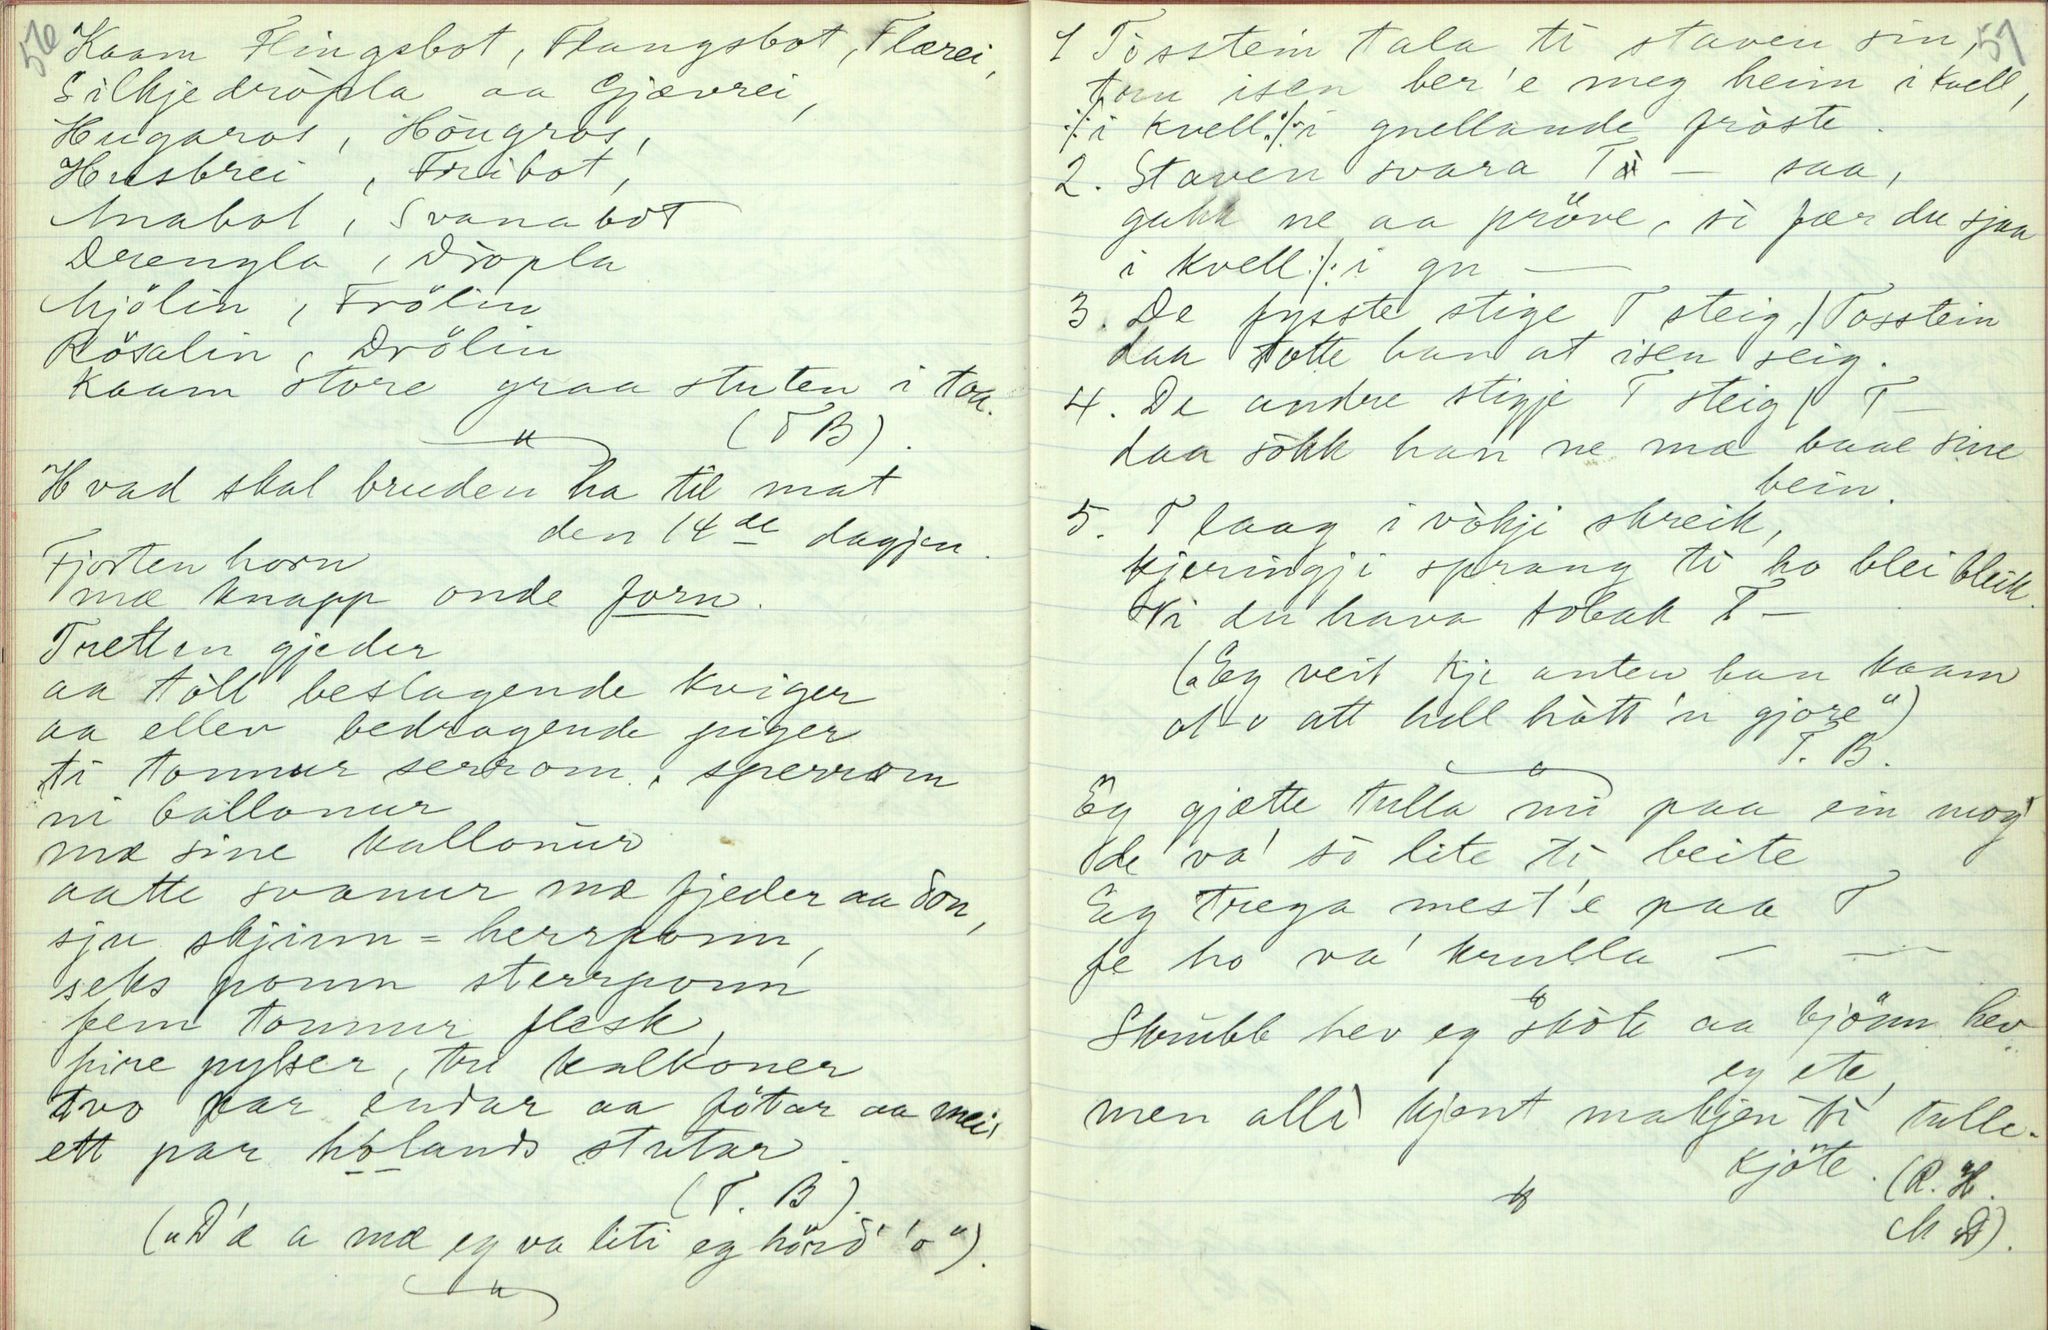 56
Kaam Flingsbot, Flangsbot, Flærei,
Silkjedròpla aa Gjævrei,
Hugaros, Höugros,
Husbrei, Fribot,
Anabot, Svanabot
Drengla, Dròpla
Mjölin, Frölin
Rösalin, Drölin
Kaam store graa stuten i taa.
(T B).
Hvad skal bruden ha til mat
den 14de dagjen.
Fjorten horn
mæ knapp onde forn.
Tretten gjeder
aa tòll beslagende kviger
aa ellev bedragende piger
ti tonnur serrom, sperrom
ni ballonur
mæ sine kallonur
aatte svanur mæ fjeder aa don,
sju skjinn = herrponn,
seks ponn sterrponn
fem tonnur flesk,
fire pylser, tri kalkoner
tvo par endar aa fötar aa mei,
ett par hòlands stutar.
(T. B).
("D'æ a mæ eg va liti eg hörd' 'o").
57
1 Tòsstein tala ti staven sin,
tru isen ber'e meg heim i kvell,
:/: i kvell :/: i gnellande fròste.
2. Staven svara Tò — saa,
gakk ne aa pröve, sò fær du sjaa
i kvell :/: i gn —
3. De fysste stige T steig, / Tosstein
daa totte han at isen seig.
4. De andre stigje T steig / T —
daa sòkk han ne mæ baae sine
bein.
5. T laag i vòkji skreik,
kjeringji sprang ti ho blei bleik.
Vi du hava tobak T —
("Eg veit kje anten han kaam
at o att hell hòtt 'n gjore")
T. B.
Eg gjætte tulla mi paa ein mog'
de va' sò lite ti beite
Eg trega mest'e paa T
fe ho va' krulla — —
Skrubb hev eg skòte aa bjönn hev
eg ete,
men alli kjent makjen ti tulle-
kjöte. (R. H.
M D).